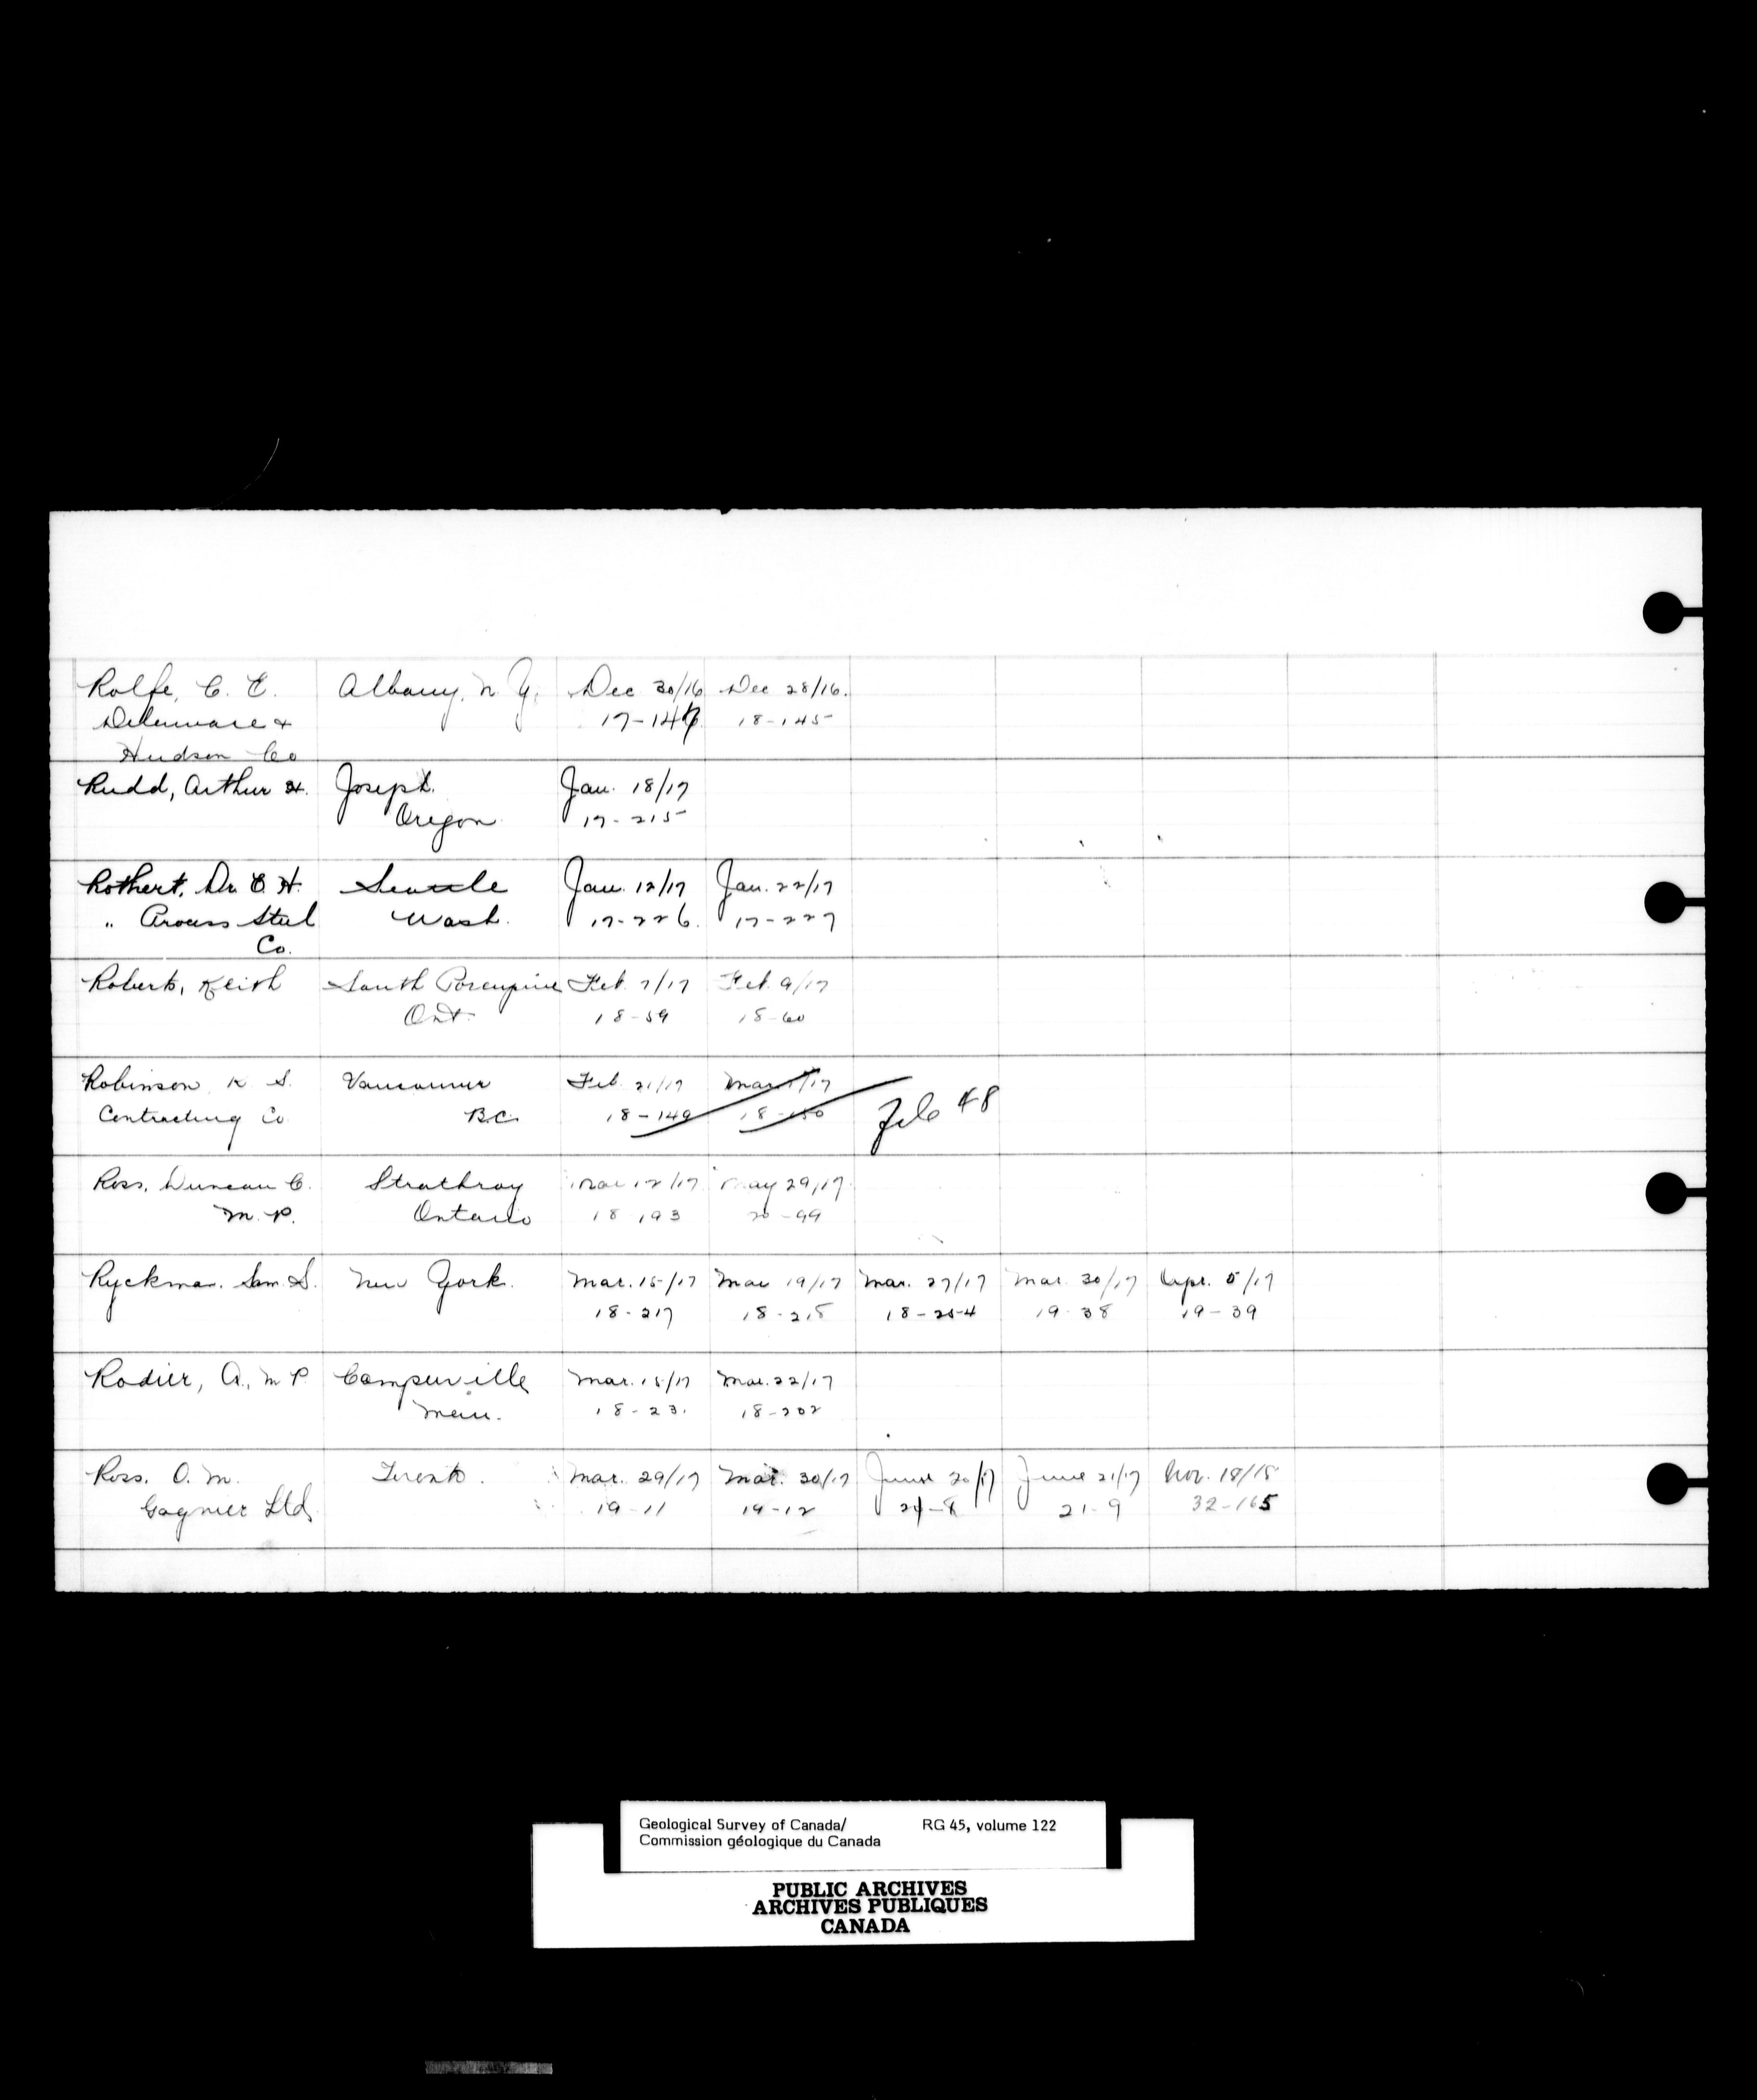 Rolfe, C. E. Albany, N. Y. Dec 30/16 Dec 28/16.
Delaware & 17-147 18-145
Hudson Co
Rudd, Arthur H. Joseph. Jan. 18/17
Oregon 17-215
Rothert, Dr. E. H. Seattle Jan. 12/17 Jan. 22/17
" Process Steel Wash. 17-226 17-227
Co.
Roberts, Keith South Porcupine Feb. 7/17 Feb. 9/17
Ont. 18-59 18-60
Robinson K S. Vancouver Feb. 21/17 Mar 1/17
Contracting Co. B.C. 18-149 18-150 File 48
Ross, Duncan C. Strathroy Mar 12/17 May 29/17
M. P. Ontario 18 193 20-99
Ryckman. Sam. S. New York. Mar. 15/17 Mar 19/17 Mar. 27/17 Mar. 30/17 Apr. 5/17
18-217 18-218 18-254 19-38 19-39
Rodier, A., M P Camperville Mar. 15/17 Mar. 22/17
Man. 18-23. 18-202
Ross. O. M. Toronto. Mar. 29/17 Mar. 30/17 June 20/17 June 21/17 Nov. 18/18
Gagnier Ltd. 19-11 19-12 21-8 21-9 32-165
Geological Survey of Canada/ RG 45, volume 122
Commission géologique du Canada
PUBLIC ARCHIVES
ARCHIVES PUBLIQUES
CANADA